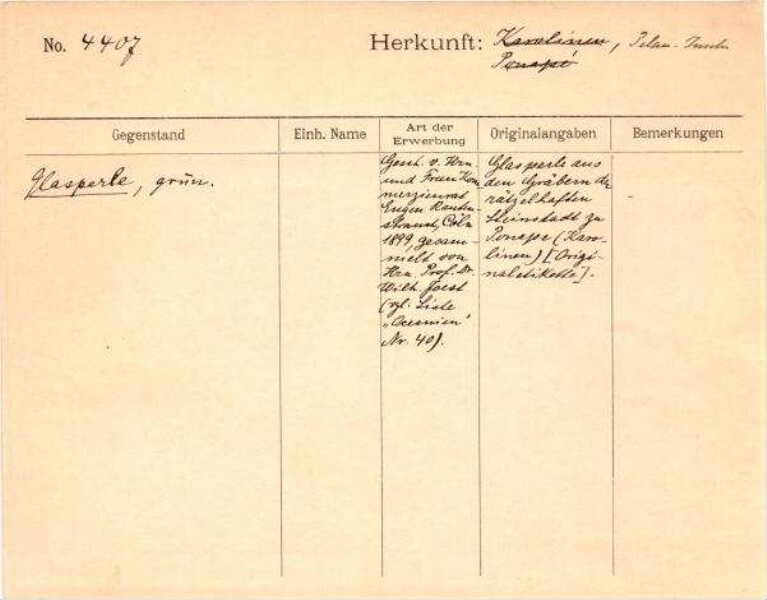 No. 4407
Herkunft: Karolinen, Palau-Inseln
Ponapé
Gegenstand
Einh. Name
Art der
Erwerbung
Originalangaben
Bemerkungen
Glasperle, grün.
Gesch. v. Hrn.
und Frau Kom
merzienrat
Eugen Rauten-
strauch, Cöln
1899, gesam-
melt von
Hrn. Prof. Dr.
Wilh. Joest
(vgl. Liste
„Oceanien"
Nr. 40).
Glasperle aus
den Gräbern der
rätzelhaften
Steinstadt zu
Ponape (Karo-
linen) [Origi-
naletikette].